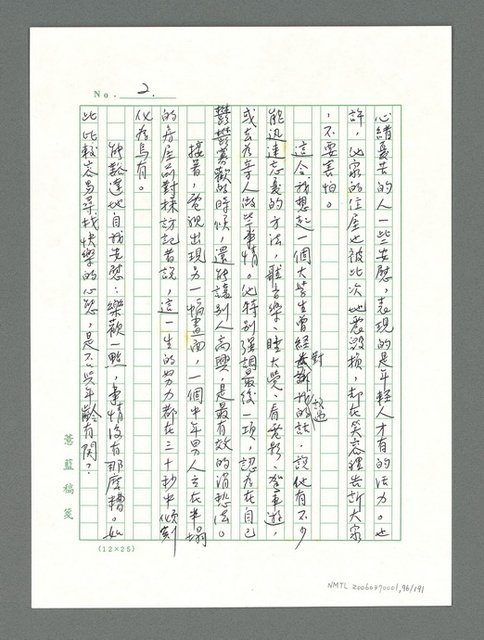 No. 2
心緒憂苦的人一些安慰，表現的是年輕人才有的活力。也
許，他家的住屋也被此次地震毀損，却在笑容裡告訴大家
，不要害怕。
這令我想起一個大學生曾經對我說過的話，說他有不少
能迅速忘憂的方法，聽音樂、睡大覺、看電影、登車遊，
或去為旁人做些事情。他特別強調最後一項，認為在自己
鬱鬱寡歡的時候，還能讓別人高興，是最有效的消愁法。
接着，電視出現另一幅畫面，一個中年男人立在半塌
的房屋前對採訪記者說，這一生的努力都在三十秒中傾刻
化為烏有。
能豁達地自我安慰：樂歡一點，事情沒有那麼糟。如
此比較容易尋找快樂的心態，是不是與年齡有關？
薏藍稿箋
(12×25)
NMTL 20060370001,96/191